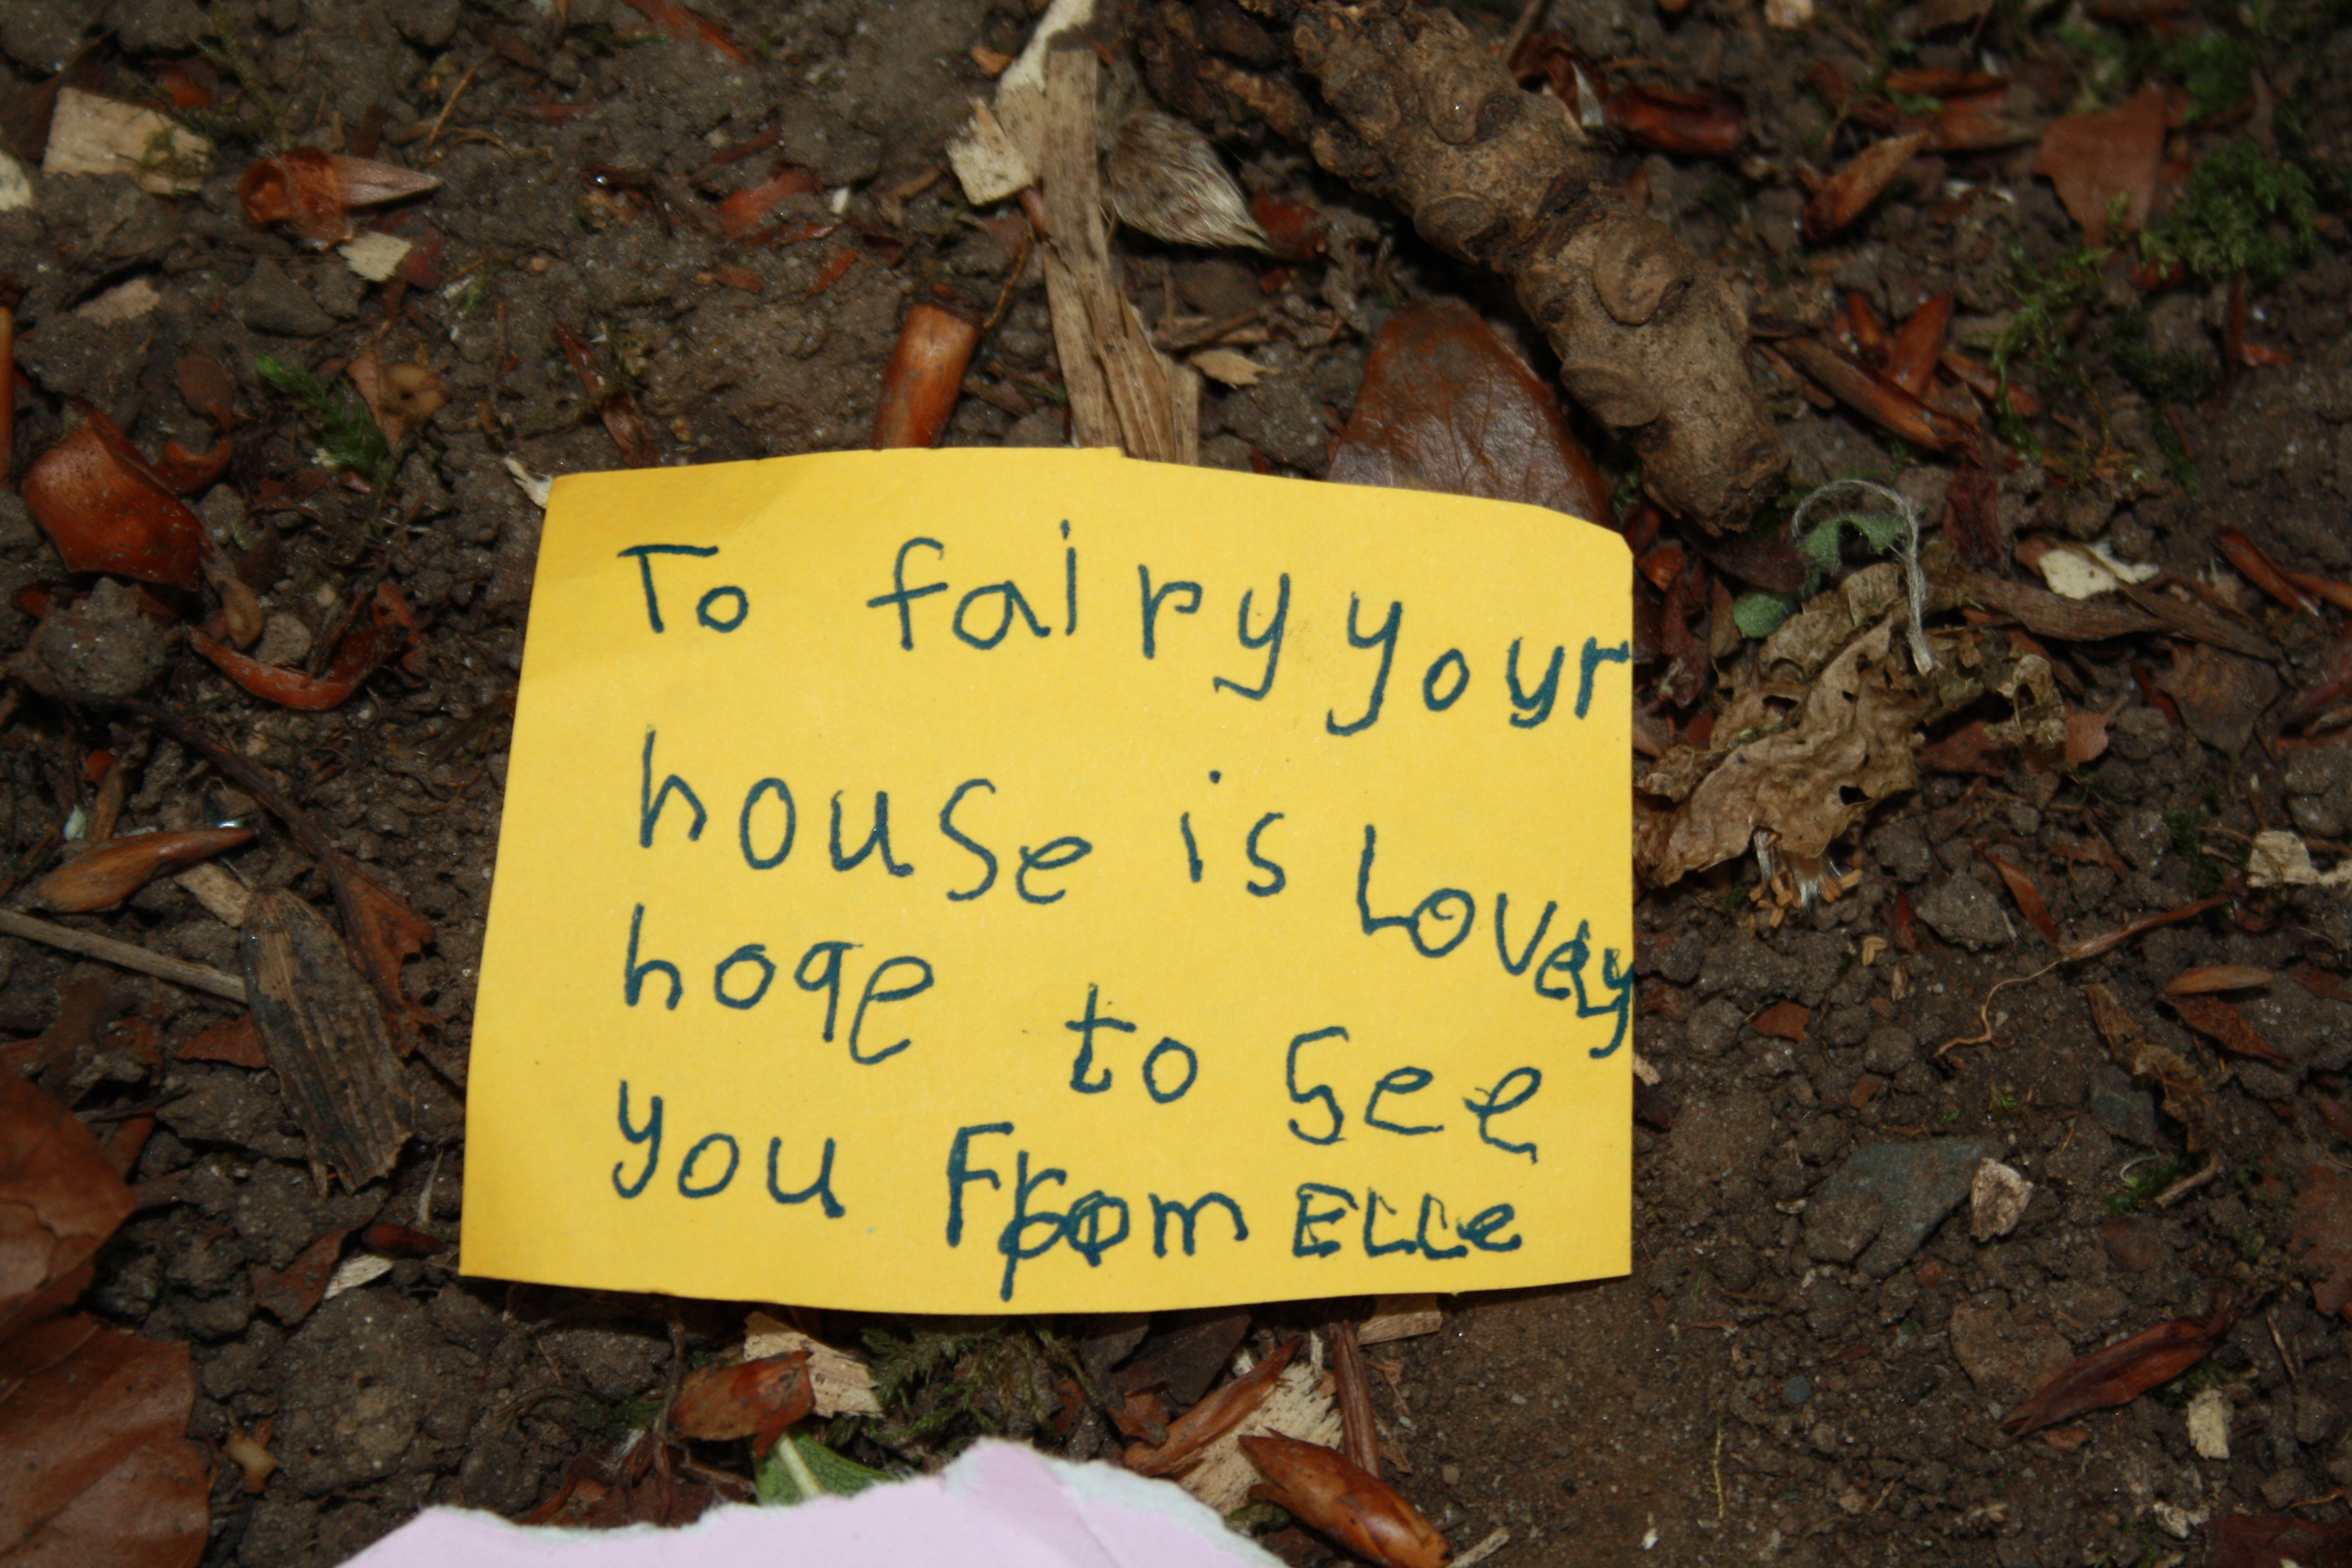 To fairy your
house is Lovely
hope to See
you From ELLe